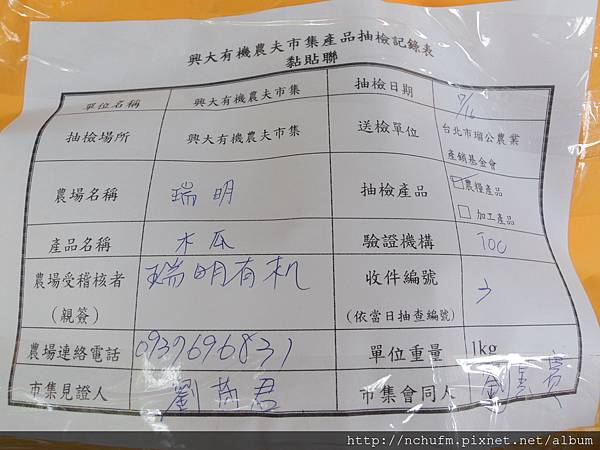 興大有機農夫市集產品抽檢記錄表
黏貼聯
單位名稱 興大有機農夫市集 抽檢日期 7/6
抽檢場所 興大有機農夫市集 送檢單位 台北市瑠公農業
產銷基金會
農場名稱 瑞明 抽檢產品 農糧產品
加工產品
產品名稱 木瓜 驗證機構 TOC
農場受稽核者 瑞明有机 收件編號 3
(親簽) (依當日抽查編號)
農場連絡電話 0937696831 單位重量 1kg
市集見證人 劉 君 市集會同人 劉
http://nchufm.pixnet.net/album